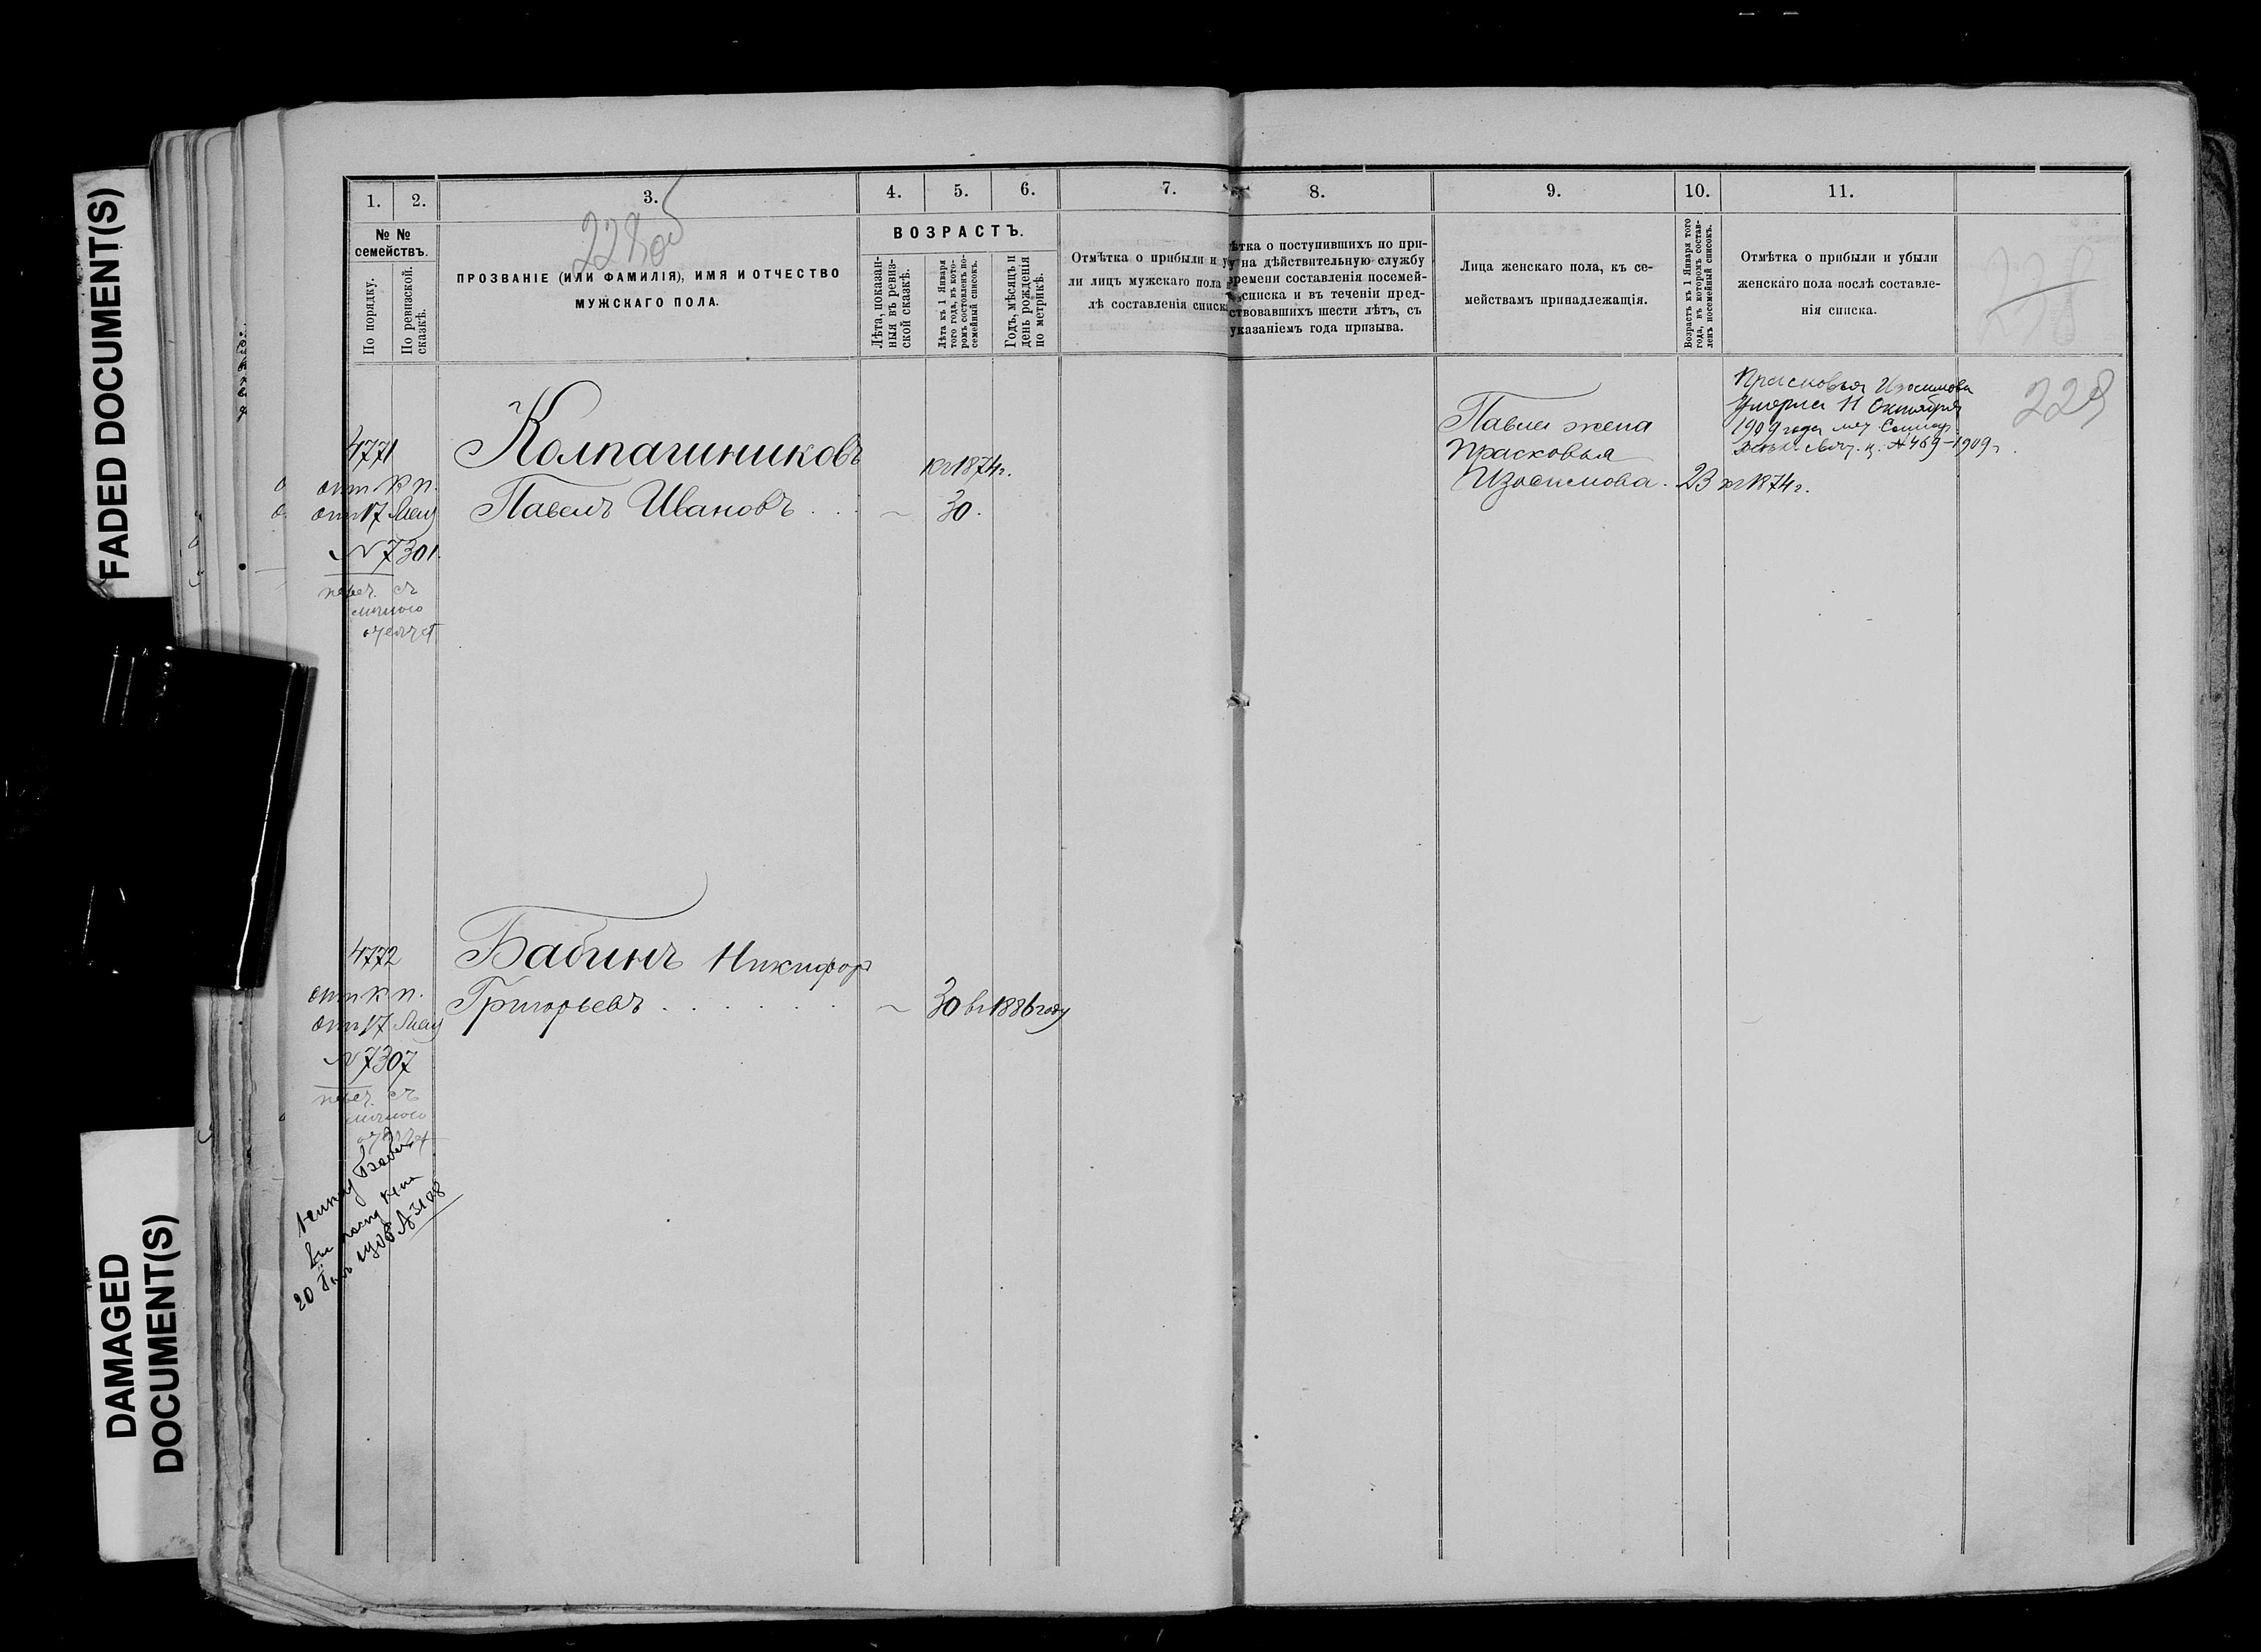 FADED DOCUMENT(S)
DAMAGED
DOCUMENT(S)
1.
2.
3.
4.
5.
6.
7.
8.
9.
10.
11.
№ №
семействъ.
По порядку.
По ревизской
сказкѣ.
ПРОЗВАНІЕ (ИЛИ ФАМИЛІЯ), ИМЯ И ОТЧЕСТВО
МУЖСКАГО ПОЛА.
ВОЗРАСТЪ.
Лѣта, показан-
ныя въ ревиз-
ской сказкѣ.
Лѣта къ 1 Января
того года, въ кото-
ромъ составленъ по-
семейный списокъ.
Годъ, мѣсяцъ и
день рожденія
по метрикѣ.
Отмѣтка о прибыли и у
ли лицъ мужскаго пола
лѣ составленія списк
ѣтка о поступившихъ по при-
у на дѣйствительную службу
ремени составленія посемей-
списка и въ теченіи пред-
ствовавшихъ шести лѣтъ, съ
указаніемъ года призыва.
Лица женскаго пола, къ се-
мействамъ принадлежащія.
Возрастъ къ 1 Января того
года, въ которомъ состав-
ленъ посемейный списокъ.
Отмѣтка о прибыли и убыли
женскаго пола послѣ составле-
нія списка.
228
229
4771
отт К п.
отт 17 Мая
№ 7301.
переч. съ
личного
Колпашниковъ
Павелъ Ивановъ . . .
къ 1874 г.
~ 30.
Павла жена
Прасковья
Изосимова. 23 къ 1874 г.
Прасковья Изосимова
Умерла 11 Октября
1909 года мет.
№ 469-1909 г.
4772
отт К п.
отт 17 Мая
№ 7307
переч. съ
личного
20 1908 № 3108
Бабинъ Никифоръ
Григорьевъ . . . . . .
~ 30 въ 1886 году